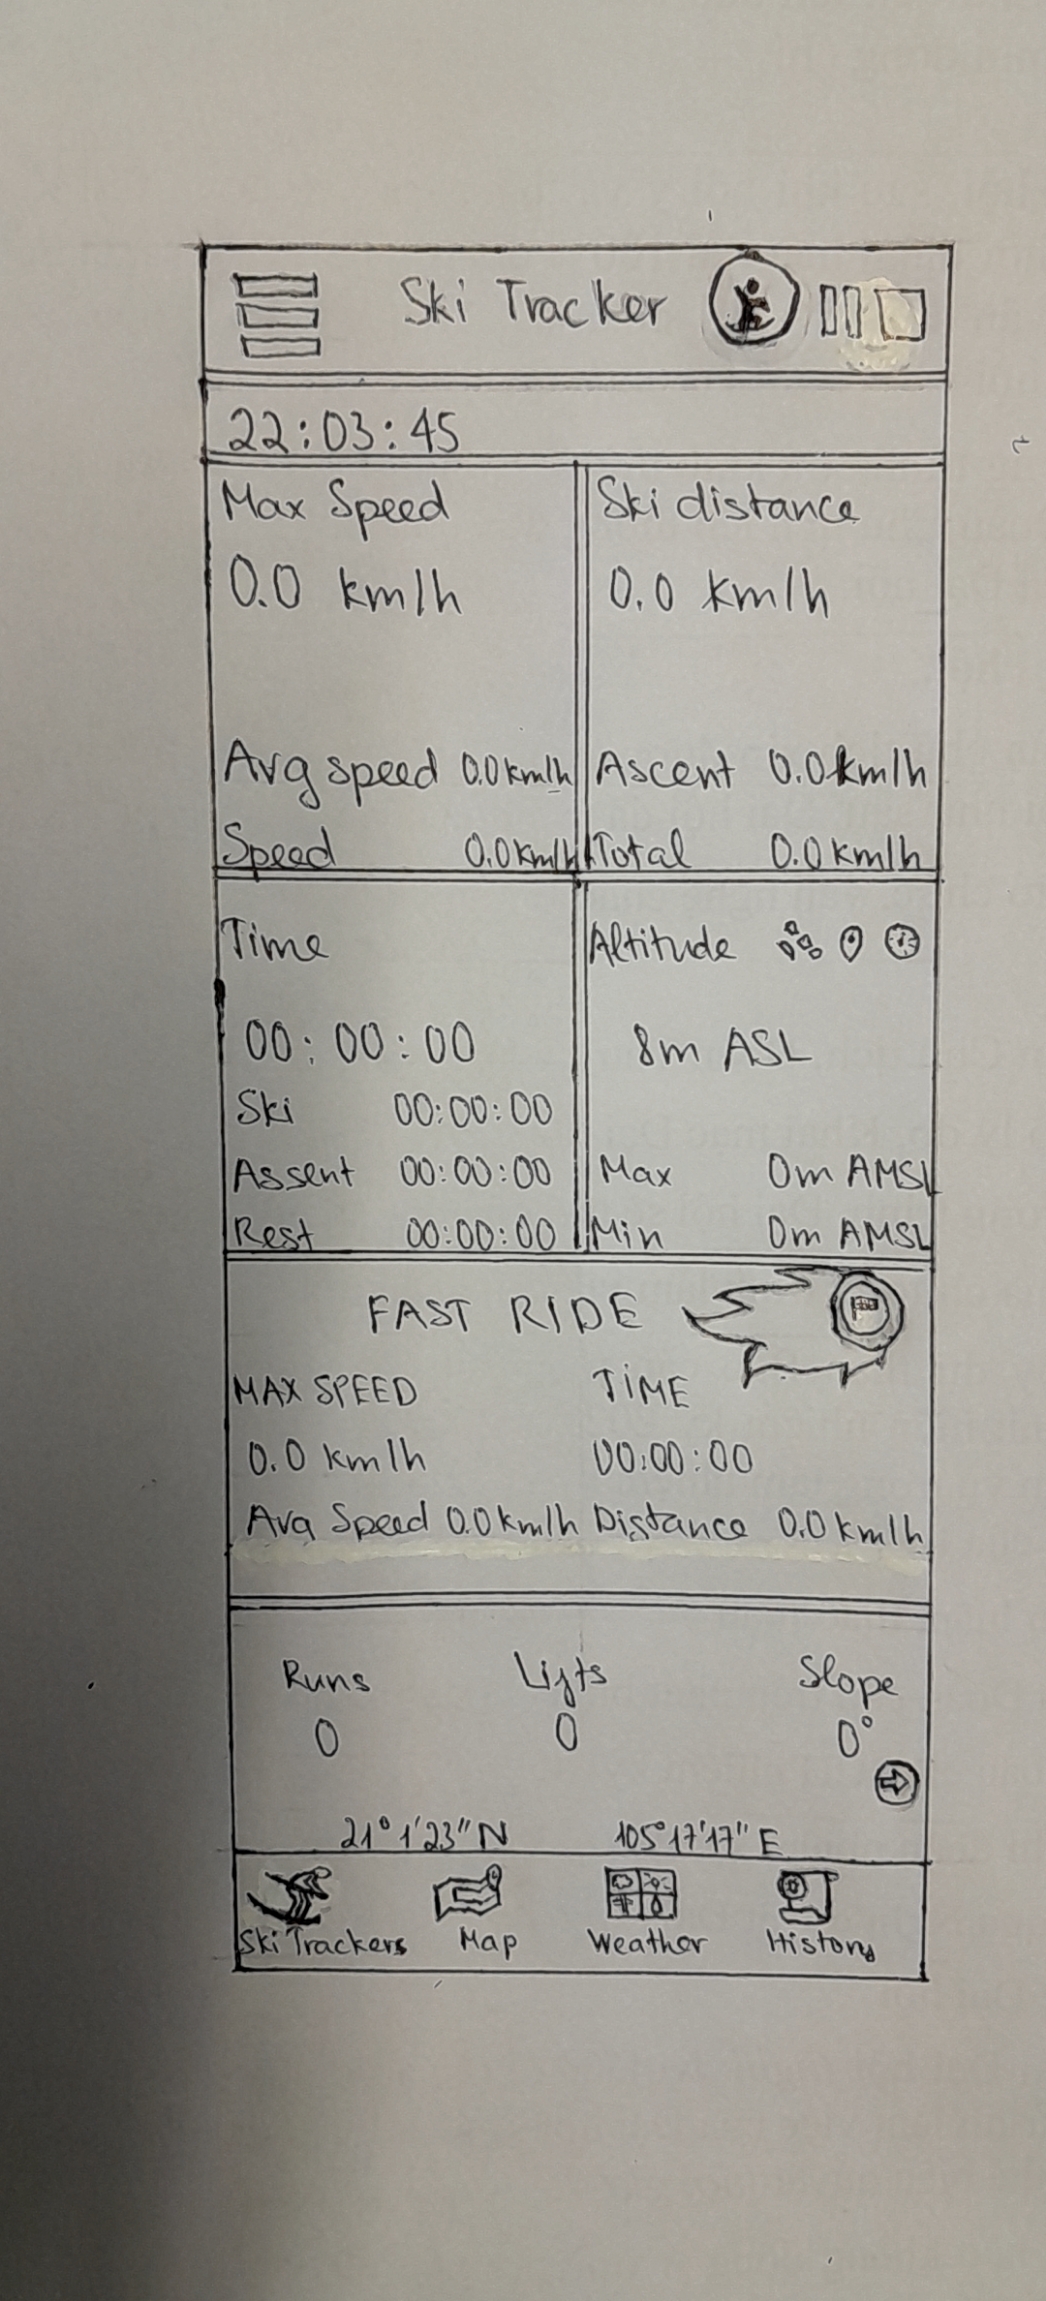 Ski Tracker
22:03:45
Max Speed
0.0 km/h
Avg speed 0.0 km/h
Speed 0.0 km/h
Ski distance
0.0 km/h
Ascent 0.0 km/h
Total 0.0 km/h
Time
00:00:00
Ski 00:00:00
Assent 00:00:00
Rest 00:00:00
Altitude
8m ASL
Max 0m AMSL
Min 0m AMSL
FAST RIDE
MAX SPEED
0.0 km/h
Avg Speed 0.0 km/h
TIME
00:00:00
Distance 0.0 km/h
Runs
0
Lifts
0
Slope
0°
21° 1'23" N 105°17'17" E
Ski Trackers Map Weather History